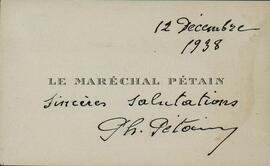 12 Décembre
1938
LE MARÉCHAL PÉTAIN
Sincères salutations
Ph. Pétain